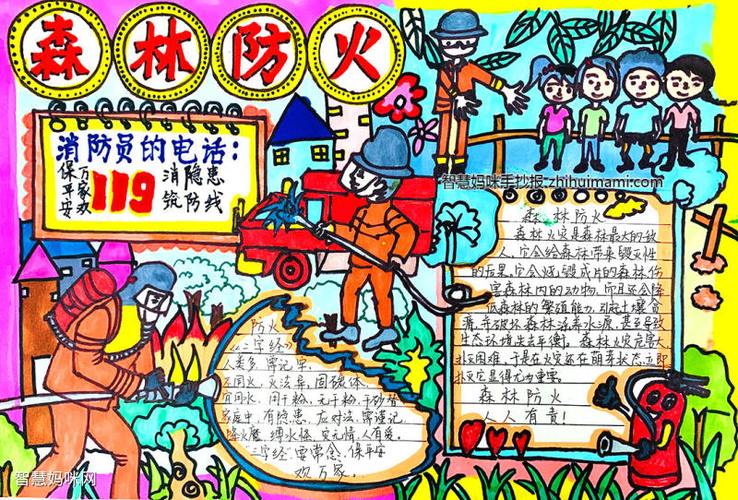 森林防火
消防员的电话：
保平安
万家欢
119
消隐患
筑防线
智慧妈咪手抄报 zhihuimami.com
森林防火
森林火灾是森林最大的敌
人，它会给森林带来毁灭性
的后果，它会烧毁成片的森林伤
害森林内的动物，而且还会降
低森林的繁殖能力，引起土壤贫
瘠，并破坏森林涵养水源，甚至导致
生态环境失去平衡。森林火灾危害大
扑灭困难，于是在火灾还在萌芽状态立即
扑灭它显得尤为重要。
森林防火
人人有责！
防火
《三字经》
人类多，需记牢，
宜用水，用干粉，
家庭中，有隐患，应对法，需谨记。
火无情，人有爱。
三字经要常念，保平安
欢万家。
智慧妈咪网